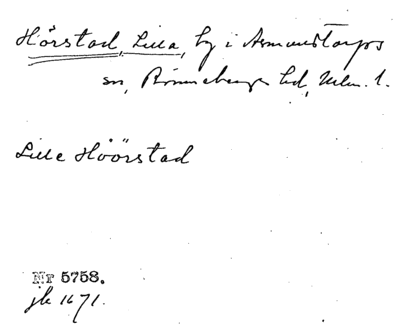 Hörstad, Lilla, by i Asmundtorps
sn, Rönnebergs hd, Malm. l.
Lille Höörstad
Nr 5758.
jb 1671.